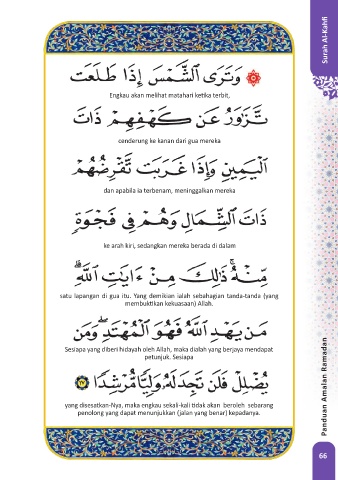 Surah Al-Kahfi
وَتَرَى ٱلشَّمْسَ إِذَا طَلَعَت
Engkau akan melihat matahari ketika terbit,
تَّزَٰوَرُ عَن كَهْفِهِمْ ذَاتَ
cenderung ke kanan dari gua mereka
ٱلْيَمِينِ وَإِذَا غَرَبَت تَّقْرِضُهُمْ
dan apabila ia terbenam, meninggalkan mereka
ذَاتَ ٱلشِّمَالِ وَهُمْ فِى فَجْوَةٍ
ke arah kiri, sedangkan mereka berada di dalam
مِّنْهُ ۚ ذَٰلِكَ مِنْ ءَايَٰتِ ٱللَّهِ ۗ
satu lapangan di gua itu. Yang demikian ialah sebahagian tanda-tanda (yang
membuktikan kekuasaan) Allah.
مَن يَهْدِ ٱللَّهُ فَهُوَ ٱلْمُهْتَدِ ۖ وَمَن
Sesiapa yang diberi hidayah oleh Allah, maka dialah yang berjaya mendapat
petunjuk. Sesiapa
يُضْلِلْ فَلَن تَجِدَ لَهُۥ وَلِيًّا مُّرْشِدًا ١٧
yang disesatkan-Nya, maka engkau sekali-kali tidak akan beroleh sebarang
penolong yang dapat menunjukkan (jalan yang benar) kepadanya.
Panduan Amalan Ramadan
66